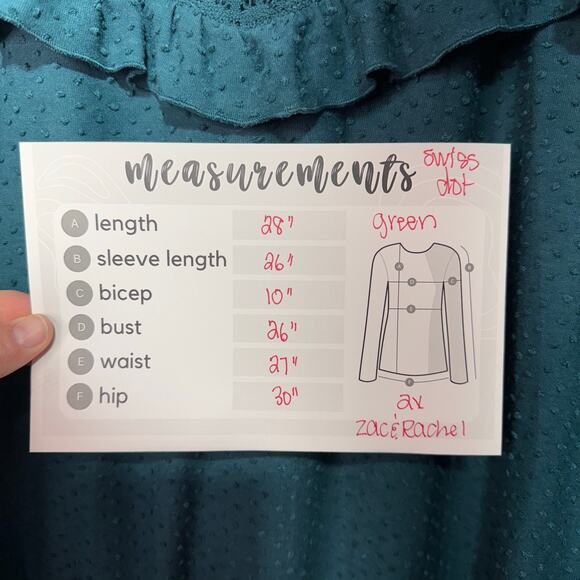 measurements
swiss
dot
green
A length 28"
B sleeve length 26"
C bicep 10"
D bust 26"
E waist 27"
F hip 30"
A
B
D
C
E
F
2x
zac & Rachel